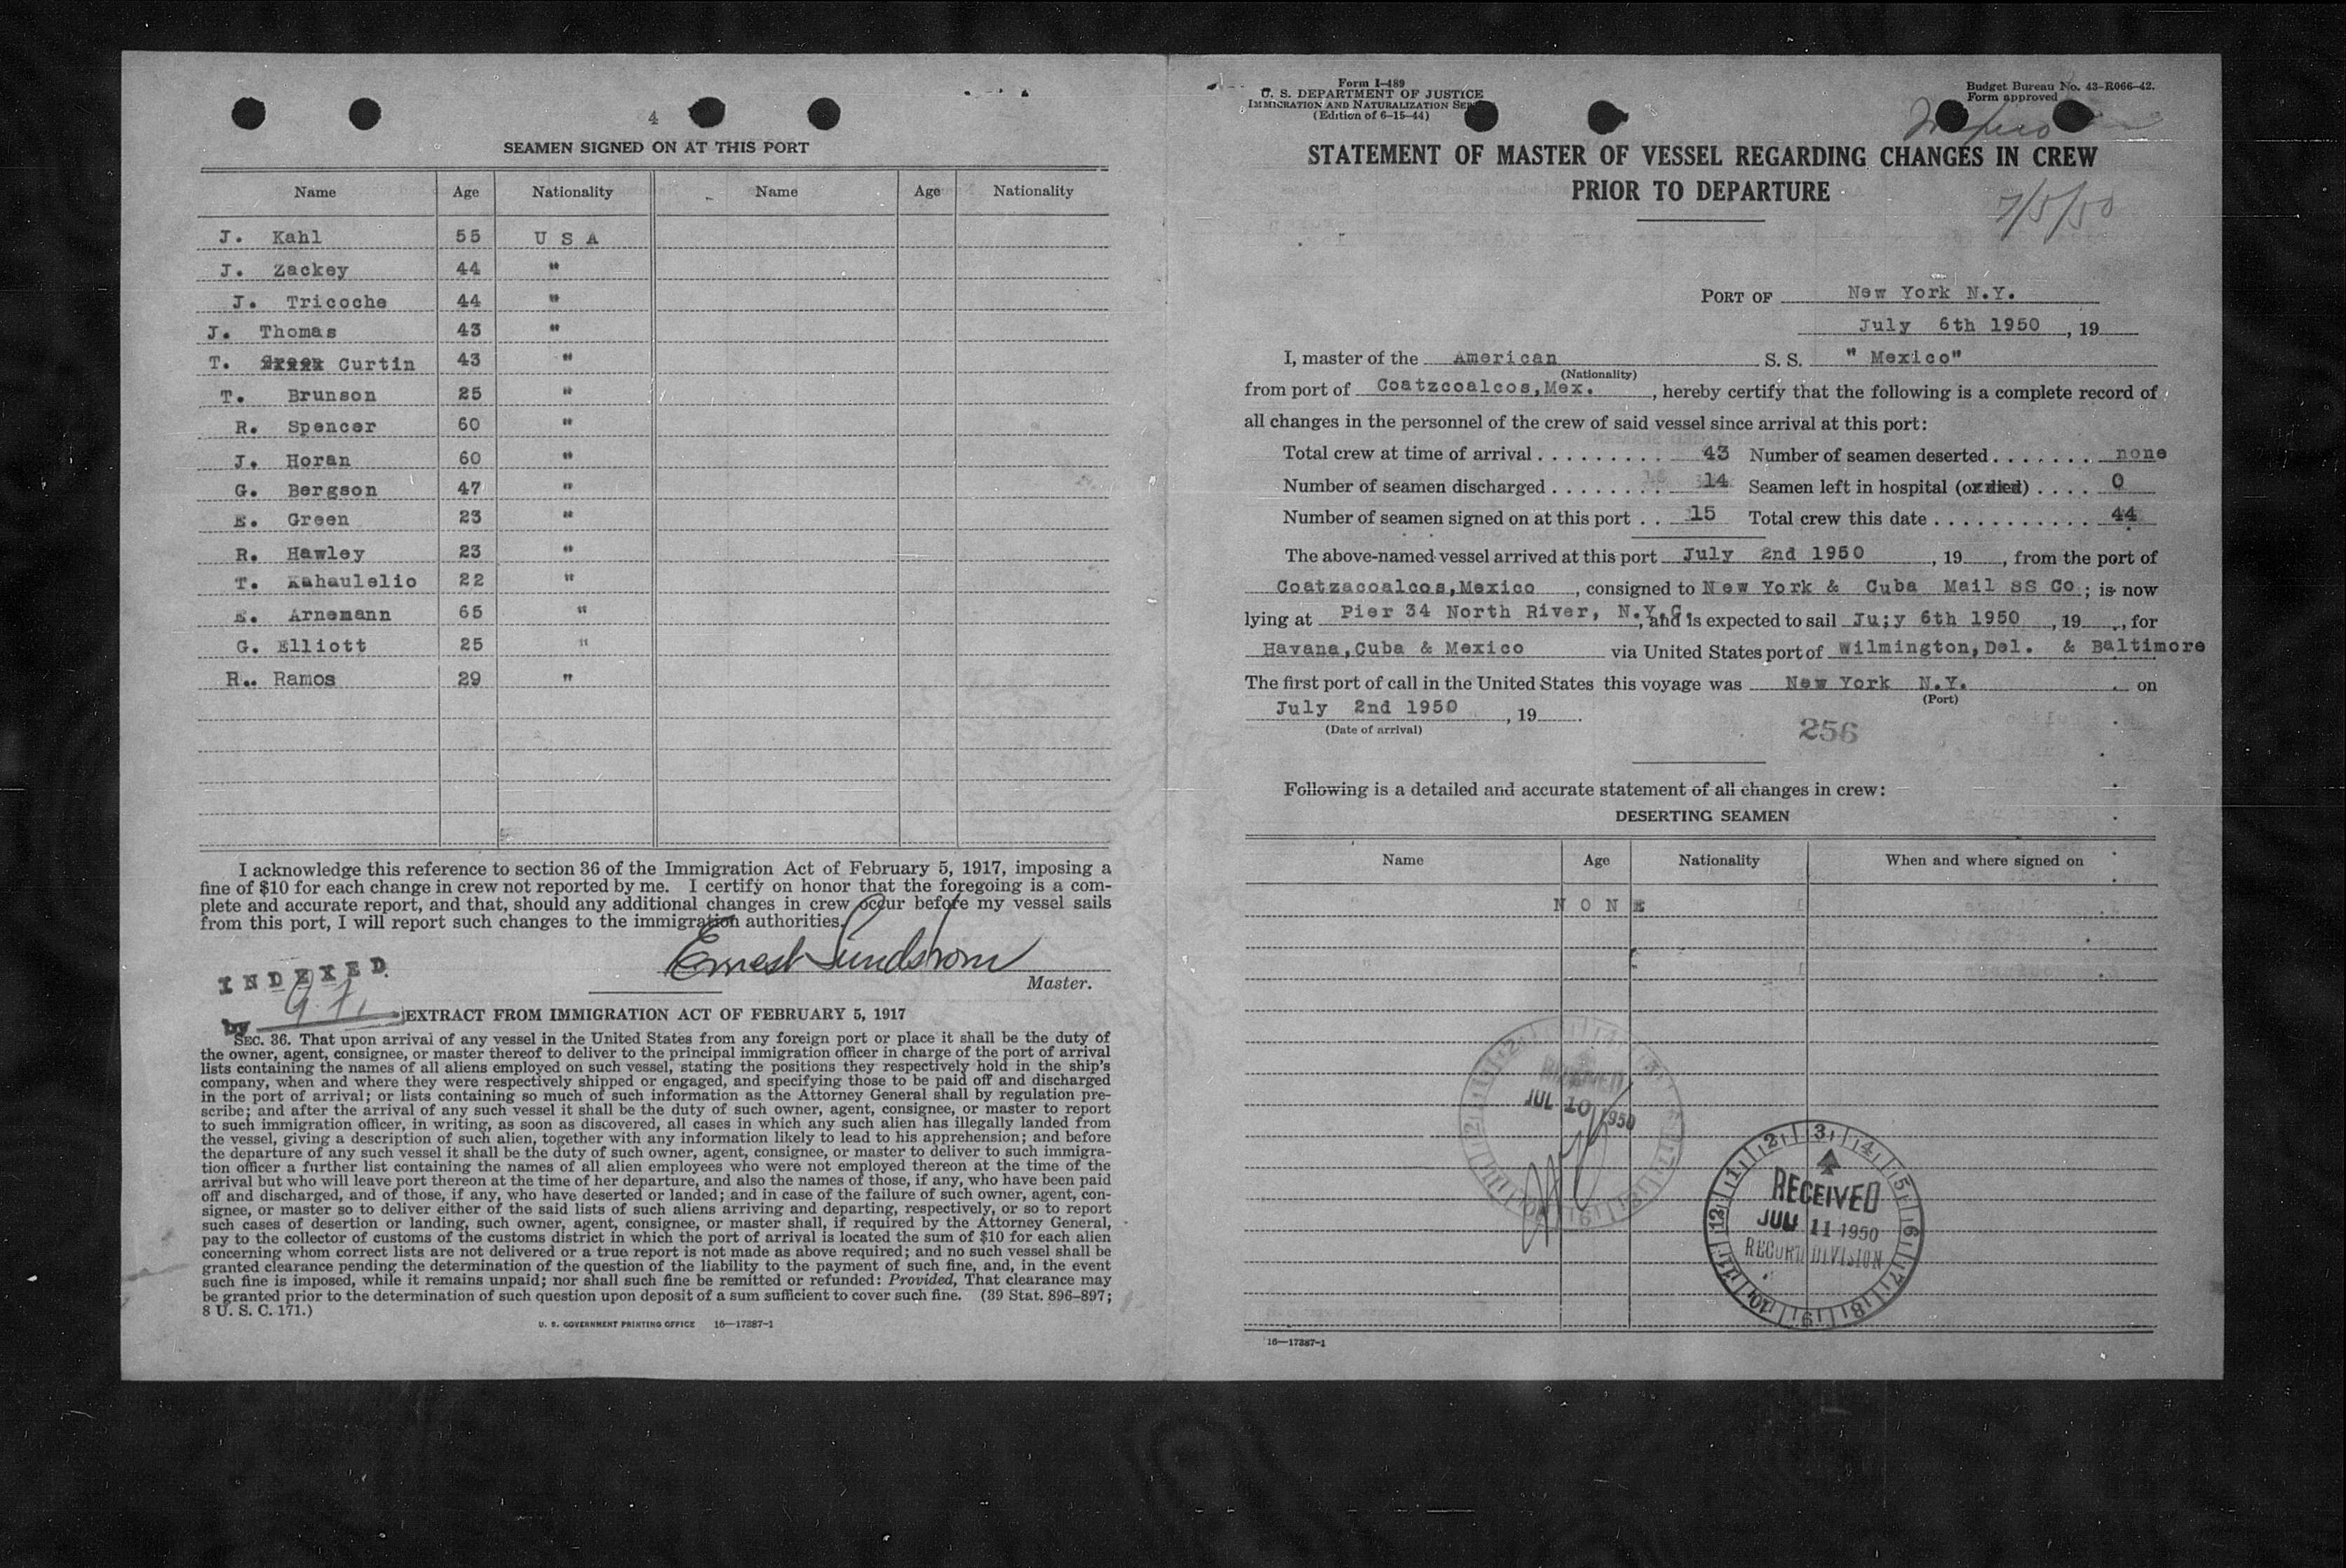 4
SEAMEN SIGNED ON AT THIS PORT
Name Age Nationality Name Age Nationality
J. Kahl 55 U S A
J. Zackey 44 "
J. Tricoche 44 "
J. Thomas 43 "
T. Curtin 43 "
T. Brunson 25 "
R. Spencer 60 "
J. Horan 60 "
G. Bergson 47 "
E. Green 23 "
R. Hawley 23 "
T. Kahaulelio 22 "
E. Arnemann 65 "
G. Elliott 25 "
R.. Ramos 29 "
I acknowledge this reference to section 36 of the Immigration Act of February 5, 1917, imposing a
fine of $10 for each change in crew not reported by me. I certify on honor that the foregoing is a com-
plete and accurate report, and that, should any additional changes in crew occur before my vessel sails
from this port, I will report such changes to the immigration authorities.
Ernest Sundstrom
Master.
INDEXED
by
EXTRACT FROM IMMIGRATION ACT OF FEBRUARY 5, 1917
SEC. 36. That upon arrival of any vessel in the United States from any foreign port or place it shall be the duty of
the owner, agent, consignee, or master thereof to deliver to the principal immigration officer in charge of the port of arrival
lists containing the names of all aliens employed on such vessel, stating the positions they respectively hold in the ship's
company, when and where they were respectively shipped or engaged, and specifying those to be paid off and discharged
in the port of arrival; or lists containing so much of such information as the Attorney General shall by regulation pre-
scribe; and after the arrival of any such vessel it shall be the duty of such owner, agent, consignee, or master to report
to such immigration officer, in writing, as soon as discovered, all cases in which any such alien has illegally landed from
the vessel, giving a description of such alien, together with any information likely to lead to his apprehension; and before
the departure of any such vessel it shall be the duty of such owner, agent, consignee, or master to deliver to such immigra-
tion officer a further list containing the names of all alien employees who were not employed thereon at the time of the
arrival but who will leave port thereon at the time of her departure, and also the names of those, if any, who have been paid
off and discharged, and of those, if any, who have deserted or landed; and in case of the failure of such owner, agent, con-
signee, or master so to deliver either of the said lists of such aliens arriving and departing, respectively, or so to report
such cases of desertion or landing, such owner, agent, consignee, or master shall, if required by the Attorney General,
pay to the collector of customs of the customs district in which the port of arrival is located the sum of $10 for each alien
concerning whom correct lists are not delivered or a true report is not made as above required; and no such vessel shall be
granted clearance pending the determination of the question of the liability to the payment of such fine, and, in the event
such fine is imposed, while it remains unpaid; nor shall such fine be remitted or refunded: Provided, That clearance may
be granted prior to the determination of such question upon deposit of a sum sufficient to cover such fine. (39 Stat. 896-897;
8 U. S. C. 171.)
U. S. GOVERNMENT PRINTING OFFICE 16—17387-1
Form I-489
U. S. DEPARTMENT OF JUSTICE
IMMIGRATION AND NATURALIZATION SER
(Edition of 6-15-44)
Budget Bureau No. 43-R066-42.
Form approved
Mexico
STATEMENT OF MASTER OF VESSEL REGARDING CHANGES IN CREW
PRIOR TO DEPARTURE
7/5/50
PORT OF New York N.Y.
July 6th 1950, 19
I, master of the American S. S. " Mexico"
(Nationality)
from port of Coatzcoalcos,Mex., hereby certify that the following is a complete record of
all changes in the personnel of the crew of said vessel since arrival at this port:
Total crew at time of arrival 43 Number of seamen deserted none
Number of seamen discharged 14 Seamen left in hospital (or died) 0
Number of seamen signed on at this port 15 Total crew this date 44
The above-named vessel arrived at this port July 2nd 1950, 19, from the port of
Coatzacoalcos,Mexico, consigned to New York & Cuba Mail SS Co; is now
lying at Pier 34 North River, N.Y.C., and is expected to sail Ju;y 6th 1950, 19, for
Havana,Cuba & Mexico via United States port of Wilmington,Del. & Baltimore
The first port of call in the United States this voyage was New York N.Y. on
(Port)
July 2nd 1950, 19.
(Date of arrival)
256
Following is a detailed and accurate statement of all changes in crew:
DESERTING SEAMEN
Name Age Nationality When and where signed on
N O N E
RECEIVED
JUL 10 1950
RECEIVED
JUL 11 1950
RECORD DIVISION
16—17387-1